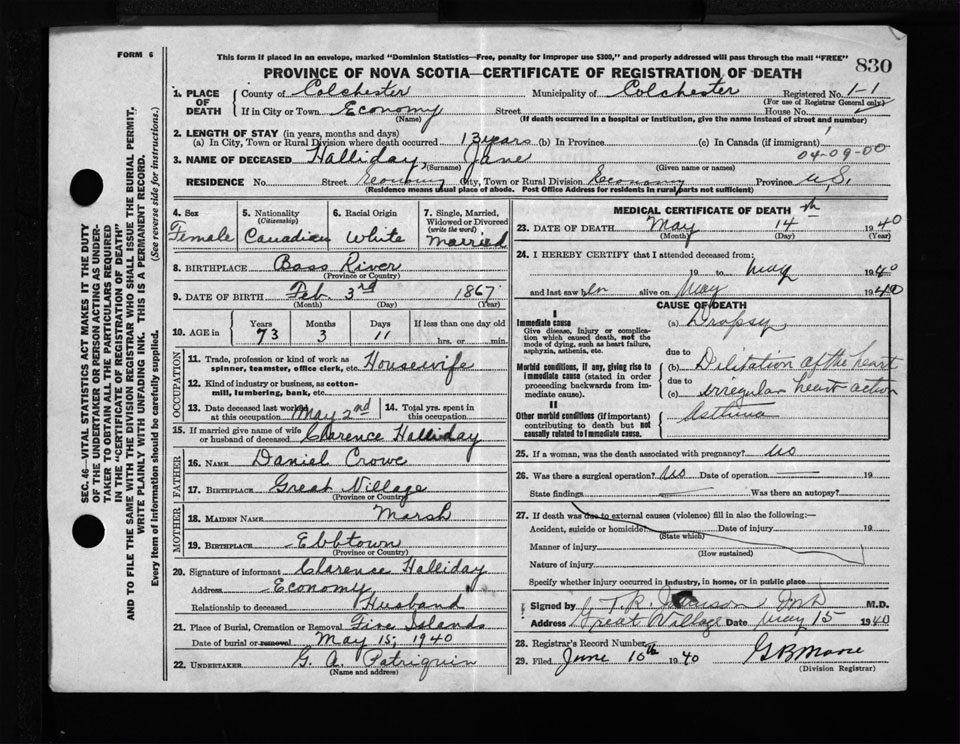 FORM 6
This form if placed in an envelope, marked "Dominion Statistics—Free, penalty for improper use $300," and properly addressed will pass through the mail "FREE"
830
PROVINCE OF NOVA SCOTIA—CERTIFICATE OF REGISTRATION OF DEATH
1. PLACE OF DEATH
County of Colchester Municipality of Colchester Registered No. 1-1
(For use of Registrar General only)
If in City or Town Economy Street House No.
(Name) (If death occurred in a hospital or institution, give the name instead of street and number)
2. LENGTH OF STAY (in years, months and days)
(a) In City, Town or Rural Division where death occurred 13 years (b) In Province (c) In Canada (if immigrant)
04-09-00
3. NAME OF DECEASED Halliday, Jane
(Surname) (Given name or names)
RESIDENCE No. Street Economy City, Town or Rural Division Economy Province
(Residence means usual place of abode. Post Office Address for residents in rural parts not sufficient)
4. Sex Female
5. Nationality (Citizenship) Canadian
6. Racial Origin White
7. Single, Married, Widowed or Divorced (write the word) Married
8. BIRTHPLACE Bass River
(Province or Country)
9. DATE OF BIRTH Feb. 3rd 1867
(Month) (Day) (Year)
10. AGE in Years Months Days If less than one day old
73 3 11 hrs. or min.
OCCUPATION
11. Trade, profession or kind of work as spinner, teamster, office clerk, etc. Housewife
12. Kind of industry or business, as cotton-mill, lumbering, bank, etc.
13. Date deceased last worked at this occupation May 2nd
14. Total yrs. spent in this occupation
15. If married give name of wife or husband of deceased Clarence Halliday
FATHER
16. NAME Daniel Crowe
17. BIRTHPLACE Great Village
(Province or Country)
MOTHER
18. MAIDEN NAME Marsh
19. BIRTHPLACE Ebbtown
(Province or Country)
20. Signature of informant Clarence Halliday
Address Economy
Relationship to deceased Husband
21. Place of Burial, Cremation or Removal Five Islands
Date of burial or removal May 15, 1940
22. UNDERTAKER G. A. Patriquin
(Name and address)
MEDICAL CERTIFICATE OF DEATH
23. DATE OF DEATH May 14th 1940
(Month) (Day) (Year)
24. I HEREBY CERTIFY that I attended deceased from;
19 to May 1940
and last saw her alive on May 1940
CAUSE OF DEATH
I
Immediate cause
Give disease, injury or complication which caused death, not the mode of dying, such as heart failure, asphyxia, asthenia, etc.
(a) Dropsy
due to
Morbid conditions, if any, giving rise to immediate cause (stated in order proceeding backwards from immediate cause).
(b) Dilitation of the heart
due to
(c) irregular heart action
II
Other morbid conditions (if important) contributing to death but not causally related to immediate cause.
Asthma
25. If a woman, was the death associated with pregnancy? no
26. Was there a surgical operation? no Date of operation 19
State findings Was there an autopsy?
27. If death was due to external causes (violence) fill in also the following:—
Accident, suicide or homicide Date of injury 19
(State which)
Manner of injury
(How sustained)
Nature of injury
Specify whether injury occurred in industry, in home, or in public place
Signed by T. R. Johnson M.D.
Address Great Village Date May 15 1940
28. Registrar's Record Number
29. Filed June 10th 1940 G B Moore
(Division Registrar)
SEC. 46—VITAL STATISTICS ACT MAKES IT THE DUTY
OF THE UNDERTAKER OR PERSON ACTING AS UNDER-
TAKER TO OBTAIN ALL THE PARTICULARS REQUIRED
IN THE "CERTIFICATE OF REGISTRATION OF DEATH"
AND TO FILE THE SAME WITH THE DIVISION REGISTRAR WHO SHALL ISSUE THE BURIAL PERMIT.
WRITE PLAINLY WITH UNFADING INK. THIS IS A PERMANENT RECORD.
Every item of information should be carefully supplied. (See reverse side for instructions.)